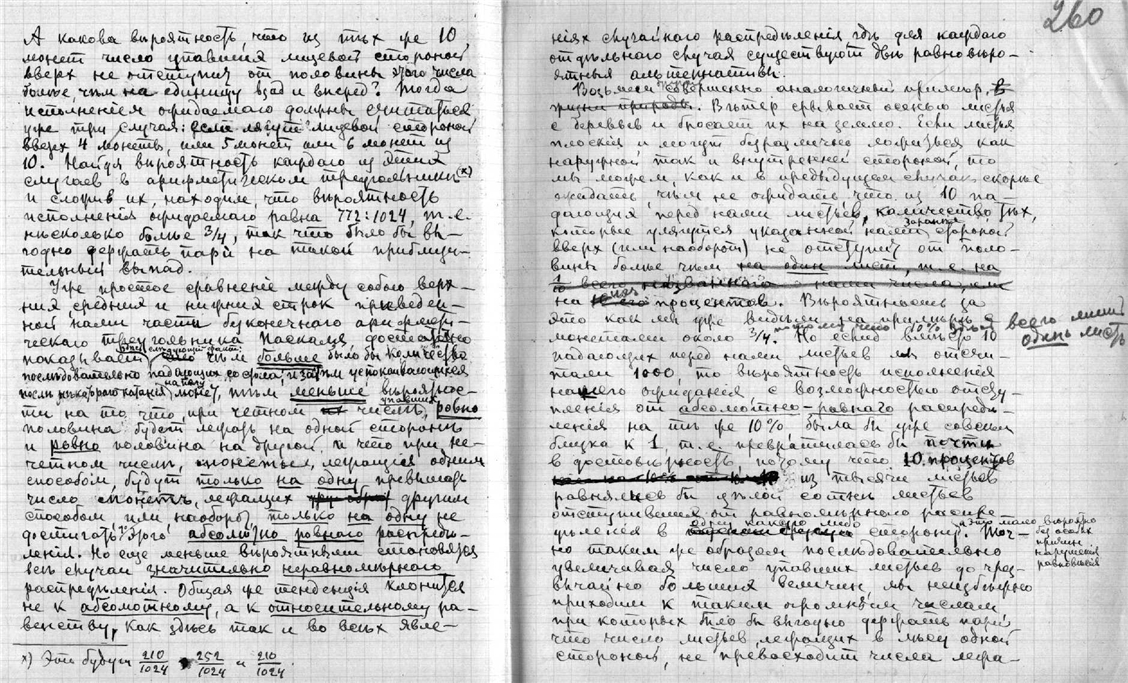 А какова вѣроятность, что из тѣх же 10
монет число упавших лицевой стороной
вверх не отступит от половины этого числа
больше, чѣм на единицу взад и вперед? Тогда
исполнением ожидаемаго должны считаться
уже три случая: если лягут лицевой стороной
вверх 4 монеты, или 5 монет или 6 монет из
10. Найдя вѣроятность каждаго из этих
случаев в арифметическом треугольникѣ х)
и сложив их, находим, что вѣроятность
исполнения ожидаемаго равна 772:1024, т.е.
нѣсколько больше 3/4, так что было бы вы-
годно держать пари на такой приблизи-
тельный выпад.
Уже простое сравненiе между собою верх-
них средних и нижних строк приведен-
ной нами части безконечнаго арифмети-
ческаго треугольника Паскаля достаточно
показывает, чѣм больше было бы количество
последовательно падающих со стола и затѣм успокаивающихся
послѣ на полу монет, тѣм меньше вѣроятнос-
ти на то, что при четном числѣ упавших, ровно
половина будет лежать на одной сторонѣ
и ровно половина на другой и что при не-
четном числѣ, монеты, лежащiя одним
способом, будут только на одну превышать
число монет, лежащих другим
способом или наоборот, только на одну не
достигать этого абсолютно ровнаго распредѣ-
ления. Но еще меньше вѣроятными становятся
всѣ случаи значительно неравномѣрнаго
распредѣленiя. Общая же тенденцiя клонится
не к абсолютному, а к относительному ра-
венству, как здѣсь так и во всѣх явле-
х) Это будут 210/1024 252/1024 и 210/1024
260
нiях случайнаго распредѣленiя гдѣ для каждаго
отдѣльнаго случая существуют двѣ равновѣро-
ятныя альтернативы.
Возьмем совершенно аналогичный пример. В
жизни природы. Вѣтер срывает осенью листья
с деревьев и бросает их на землю. Если листья
плоски и могут безразлично ложиться как
наружной так и внутренней стороной, то
мы можем, как и в предыдущем случаѣ скорѣе
ожидать, чѣм не ожидать, что из 10 па-
дающих перед нами листьев, количество тѣх,
которые улягутся указанной нами заранѣе стороной
вверх (или наоборот) не отступит от поло-
вины больше чѣм на один лист, т.е. на
на процентов. Вѣроятность за
это как мы уже видѣли на примѣрѣ с
монетами около 3/4, потому что 10% здѣсь всего лишь
один листъ
Но если вмѣсто 10
падающих перед нами листьев мы отсчи-
тали 1000, то вѣроятность исполненiя
нашего ожиданiя с возможностью отсту-
пленiя от абсолютно-равнаго распредѣ-
ленiя на тѣ же 10% была бы уже совсѣм
близка к 1, т.е. превратилась бы почти
в достовѣрность, потому что 10 процентов
из тысячи листьев
равнялись бы цѣлой сотнѣ листьев
отступившей от равномѣрного распре-
дѣления в одну какую либо сторону, а это мало вѣроятно
без особых
причин
нарушения
равновесiя
Точ-
но таким же образом послѣдовательно
увеличивая число упавших листьев до чрез-
вычайно больших величин, мы неизбѣжно
приходим к таким огромным числам
при которых было бы выгодно держать пари
что число листьев, лежащих в лѣсу одной
стороной, не превосходит числа лежа-